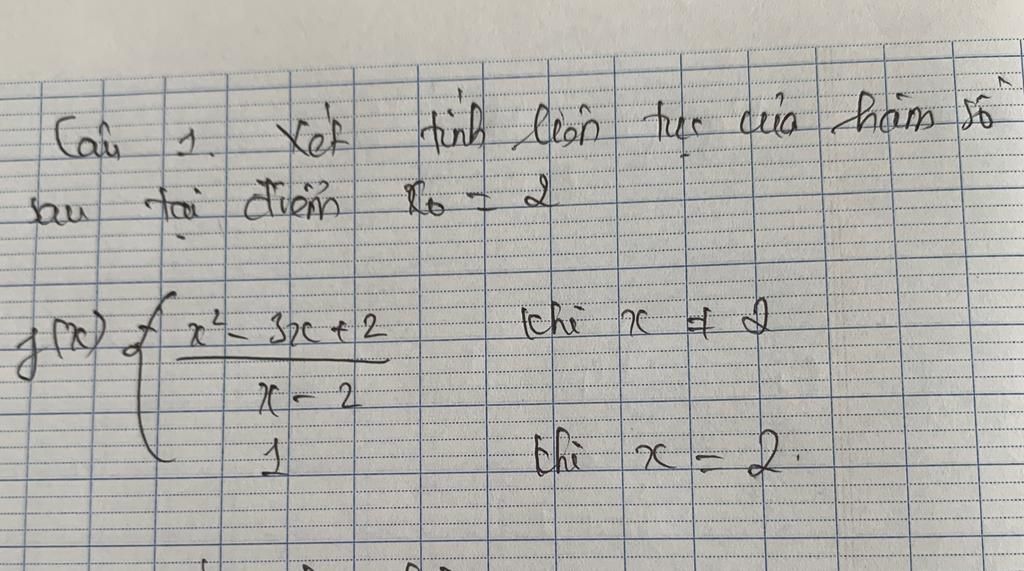 Câu 1. Xét tính liên tục của hàm số
sau tại điểm x₀ = 2
f(x) { x² - 3x + 2 khi x ≠ 2
x - 2
1 khi x = 2.